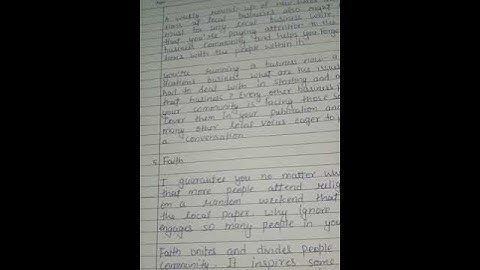 A weekly round up of new hires and
tions at local businesses also might
nical for any local business write
that you're paying attention to the
business community and helps you forge
tions with the people within it.
you're running a business now a
lications business what are the issues
had to deal with in starting and
that business? Every other business
your community is facing those
Cover them in your publication and
many other local voices eager to
a conversation
Faith
I guarantee you no matter
that more people attend relig
on a random weekend that
the local paper. why ignore
engages so many people in you
Faith unites and divides people
community. It inspires some